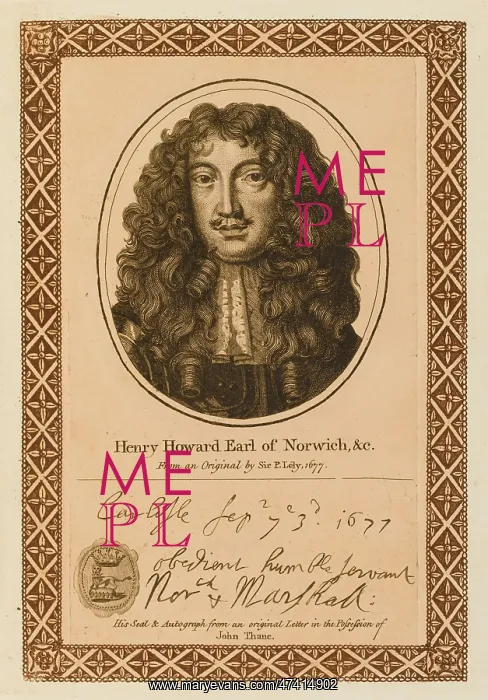 ME
PL
Henry Howard Earl of Norwich, &c.
From an Original by Sir P. Lely, 1677.
ME
PL
Carlysle Sepr ye 3d. 1677
obedient humble servant
Norch & Marshall:
His Seal & Autograph from an original Letter in the Possession of
John Thane.
www.maryevans.com/47414902